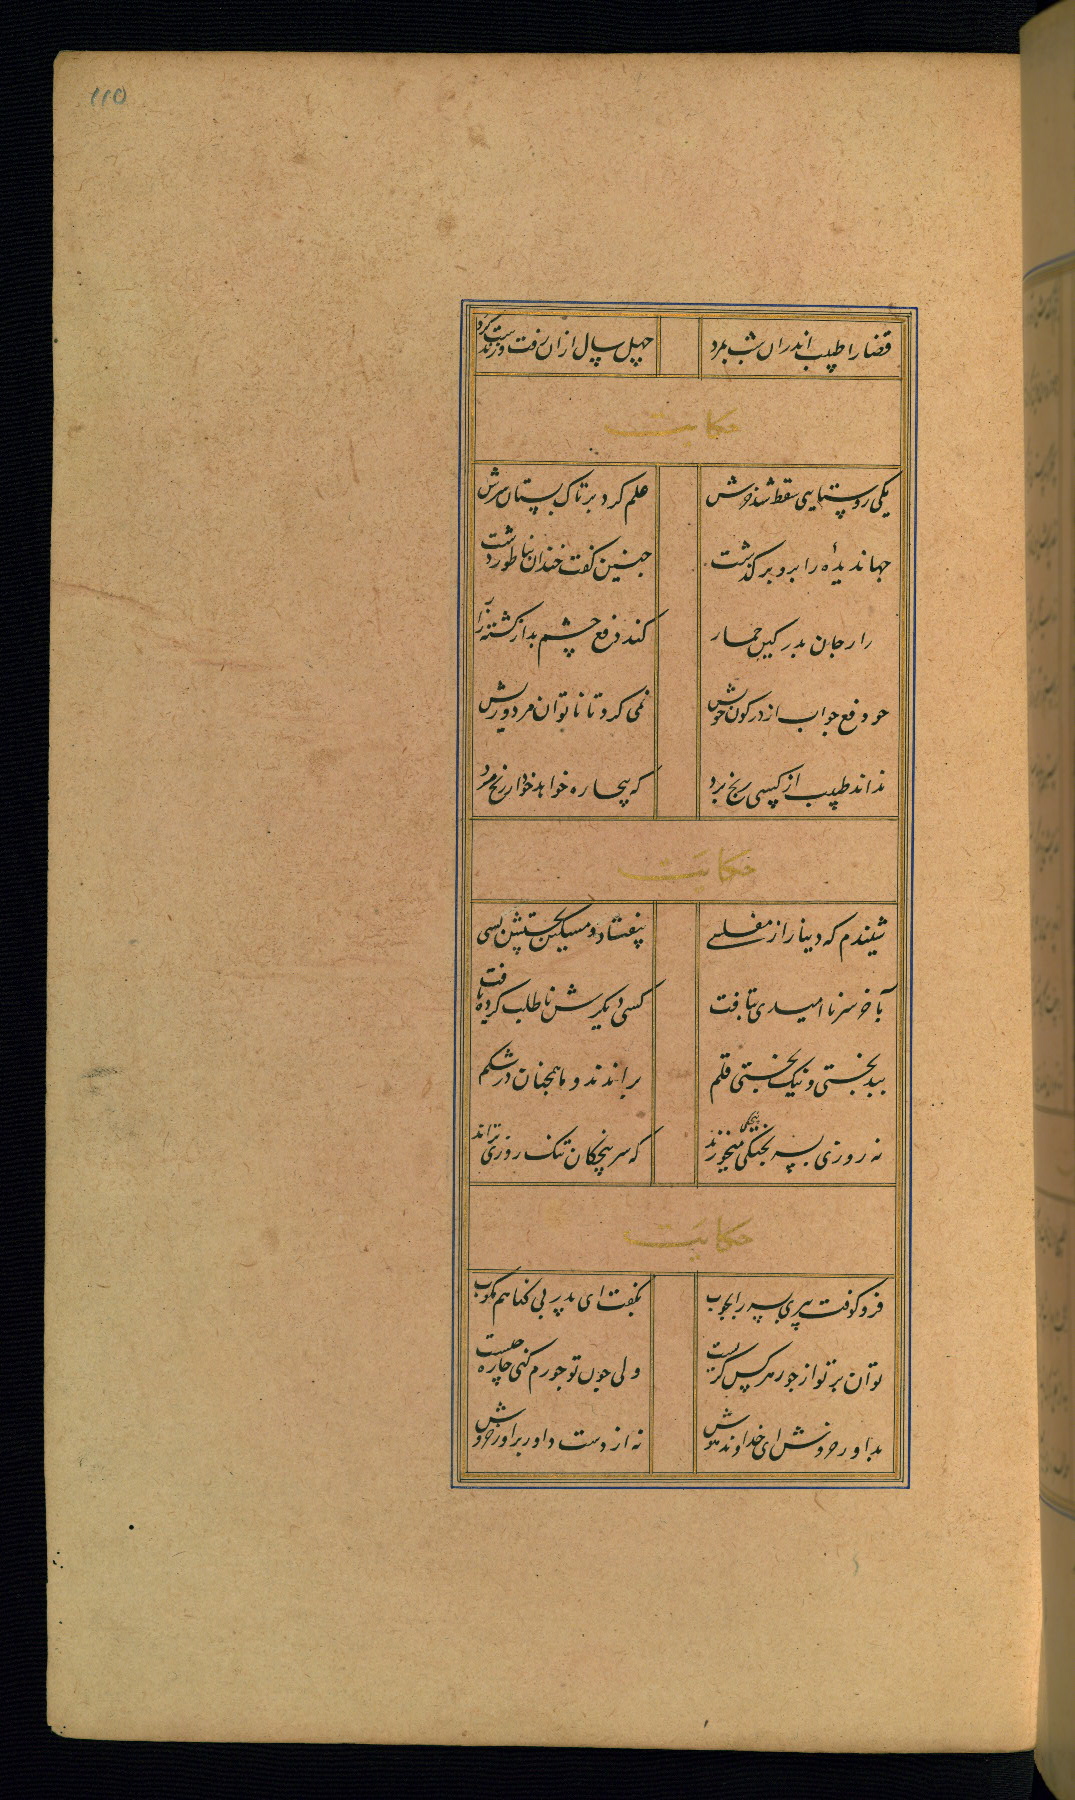 110
قضا را طبیب اندران شب بمرد چهل سال ازان رفت و زندست کرد
حکایت
یکی روستایی سقط شد خرش علم کرد بر تاک بستان سرش
جهاندیدهٔ را برو بر گذشت چنین گفت خندان بناطور دشت
جان پدر کین حمار کند دفع چشم بد از کشته زار
دفع چوب از در کون خوش نمی کرد تا ناتوان مرد و ریش
نداند طبیب از کسی رنج برد که بیچاره خواهد خود از رنج مرد
حکایت
شنیدم که دینار از مفلسی بیفتاد و مسکین بجستش بسی
بآخر سر ناامیدی بتافت کسی دیگرش ناطلب کرده یافت
ببدبختی و نیک بختی قلم براندند و ما همچنان در شکم
نه روزی بسر پنجگی میخورند که سرپنجگان تنگ روزی ترند
حکایت
فرو کوفت پیری پسر را بچوب بگفت ای پدر بی گناهم مکوب
توان بر تو از جور هر کس گریست ولی چون تو جورم کنی چاره چیست
بداور خروش ای خداوند هوش نه از دست داور براور خروش